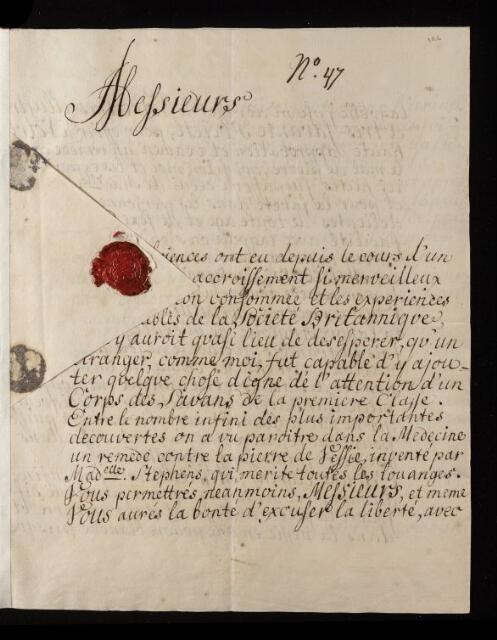 Nº. 47
Messieurs
ont eu depuis le cours d'un
accroissement si merveilleux
consommée et les experiences
de la Societé Britannique,
y auroit quasi lieu de desesperer, qu'un
etranger, comme moi, fut capable d'y ajou-
ter quelque chose digne de l'attention d'un
Corps des Savans de la premiere Classe.
Entre le nombre infini des plus importantes
decouvertes on a vu paroitre dans la Medecine
un remede contre la pierre de Vessie, inventé par
Madelle. Stephens, qui merite toutes les louanges.
Vous permettrés, neanmoins, Messieurs, et meme
Vous aurés la bonte d'excuser la liberté, avec